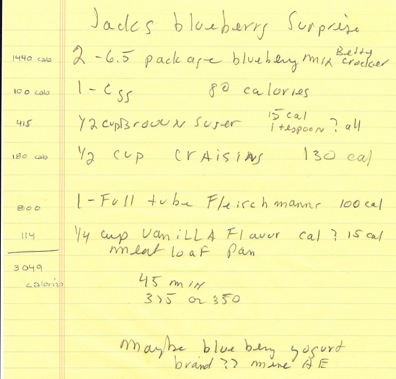 Jacks blueberry Surprise
1440 cals 2 - 6.5 package blueberry mix Betty Crocker
100 cals 1 - Egg 80 calories
415 1/2 cup Brown Suger 15 cal 1 tespoon ? all
180 cals 1/2 cup craisins 130 cal
800 1 - Full tube Fleischmanns 100 cal
114 1/4 cup VaniLLA Flavor cal ? 15 cal
meat loaf pan
3049 calories
45 min
375 or 350
maybe blue bery yogurt
brand ?? mine AE